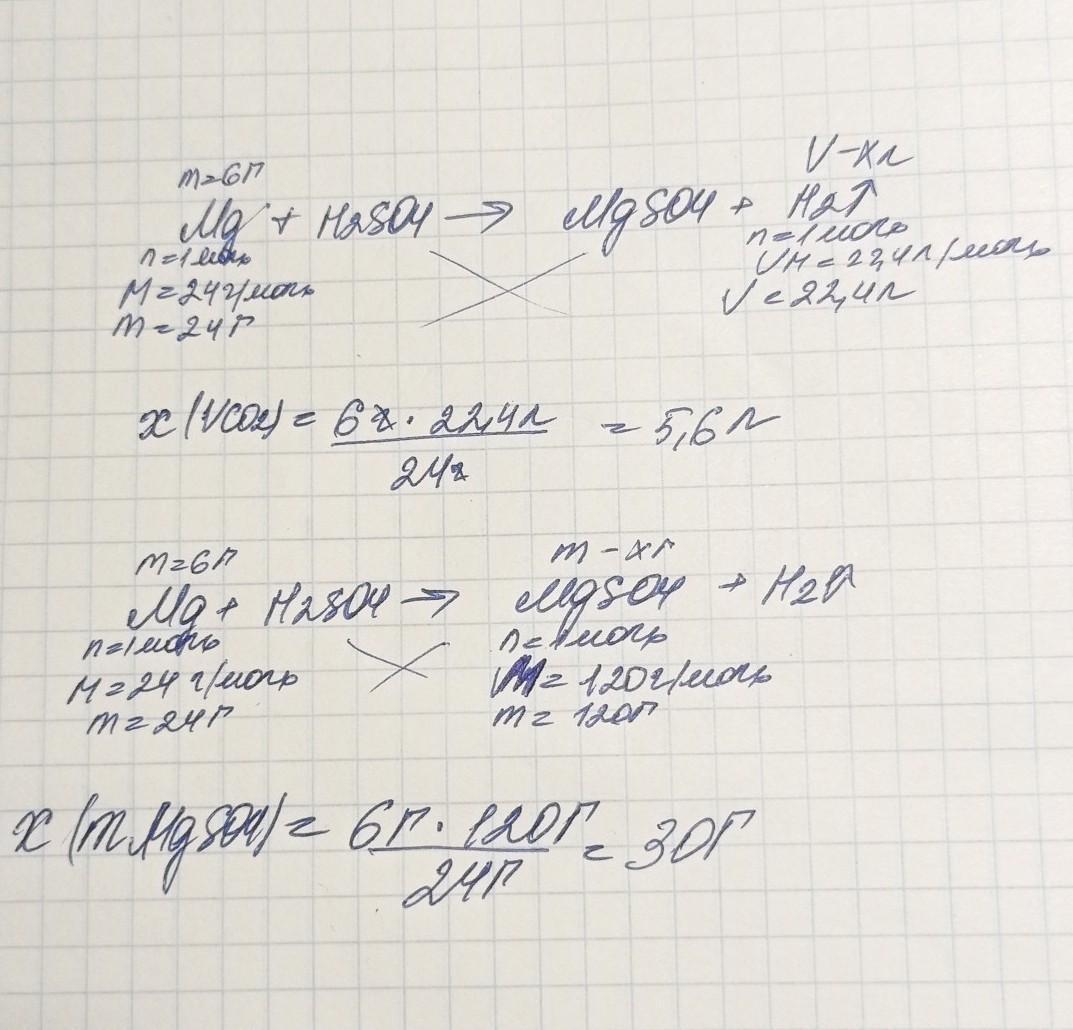 V-xл
m=6г
Mg + H2SO4 → MgSO4 + H2↑
n=1моль n=1моль
M=24г/моль VM=22,4л/моль
m=24г V=22,4л
x(VCO2)= 6г·22,4л / 24г = 5,6л
m=6г m-xг
Mg + H2SO4 → MgSO4 + H2↑
n=1моль n=1моль
M=24 г/моль M=120г/моль
m=24г m=120г
x(mMgSO4)= 6г·120г / 24г = 30г